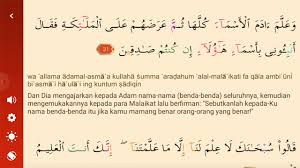 وَعَلَّمَ ءَادَمَ ٱلْأَسْمَآءَ كُلَّهَا ثُمَّ عَرَضَهُمْ عَلَى ٱلْمَلَـٰٓئِكَةِ فَقَالَ
أَنۢبِـُٔونِى بِأَسْمَآءِ هَـٰٓؤُلَآءِ إِن كُنتُمْ صَـٰدِقِينَ 31
wa 'allama ādamal-asmā'a kullahā ṡumma 'araḍahum 'alal-malā'ikati fa qāla ambi'ụnī
bi'asmā'i hā'ulā'i ing kuntum ṣādiqīn
Dan Dia mengajarkan kepada Adam nama-nama (benda-benda) seluruhnya, kemudian
mengemukakannya kepada para Malaikat lalu berfirman: "Sebutkanlah kepada-Ku
nama benda-benda itu jika kamu mamang benar orang-orang yang benar!"
قَالُوا۟ سُبْحَـٰنَكَ لَا عِلْمَ لَنَآ إِلَّا مَا عَلَّمْتَنَآ ۖ إِنَّكَ أَنتَ ٱلْعَلِيمُ